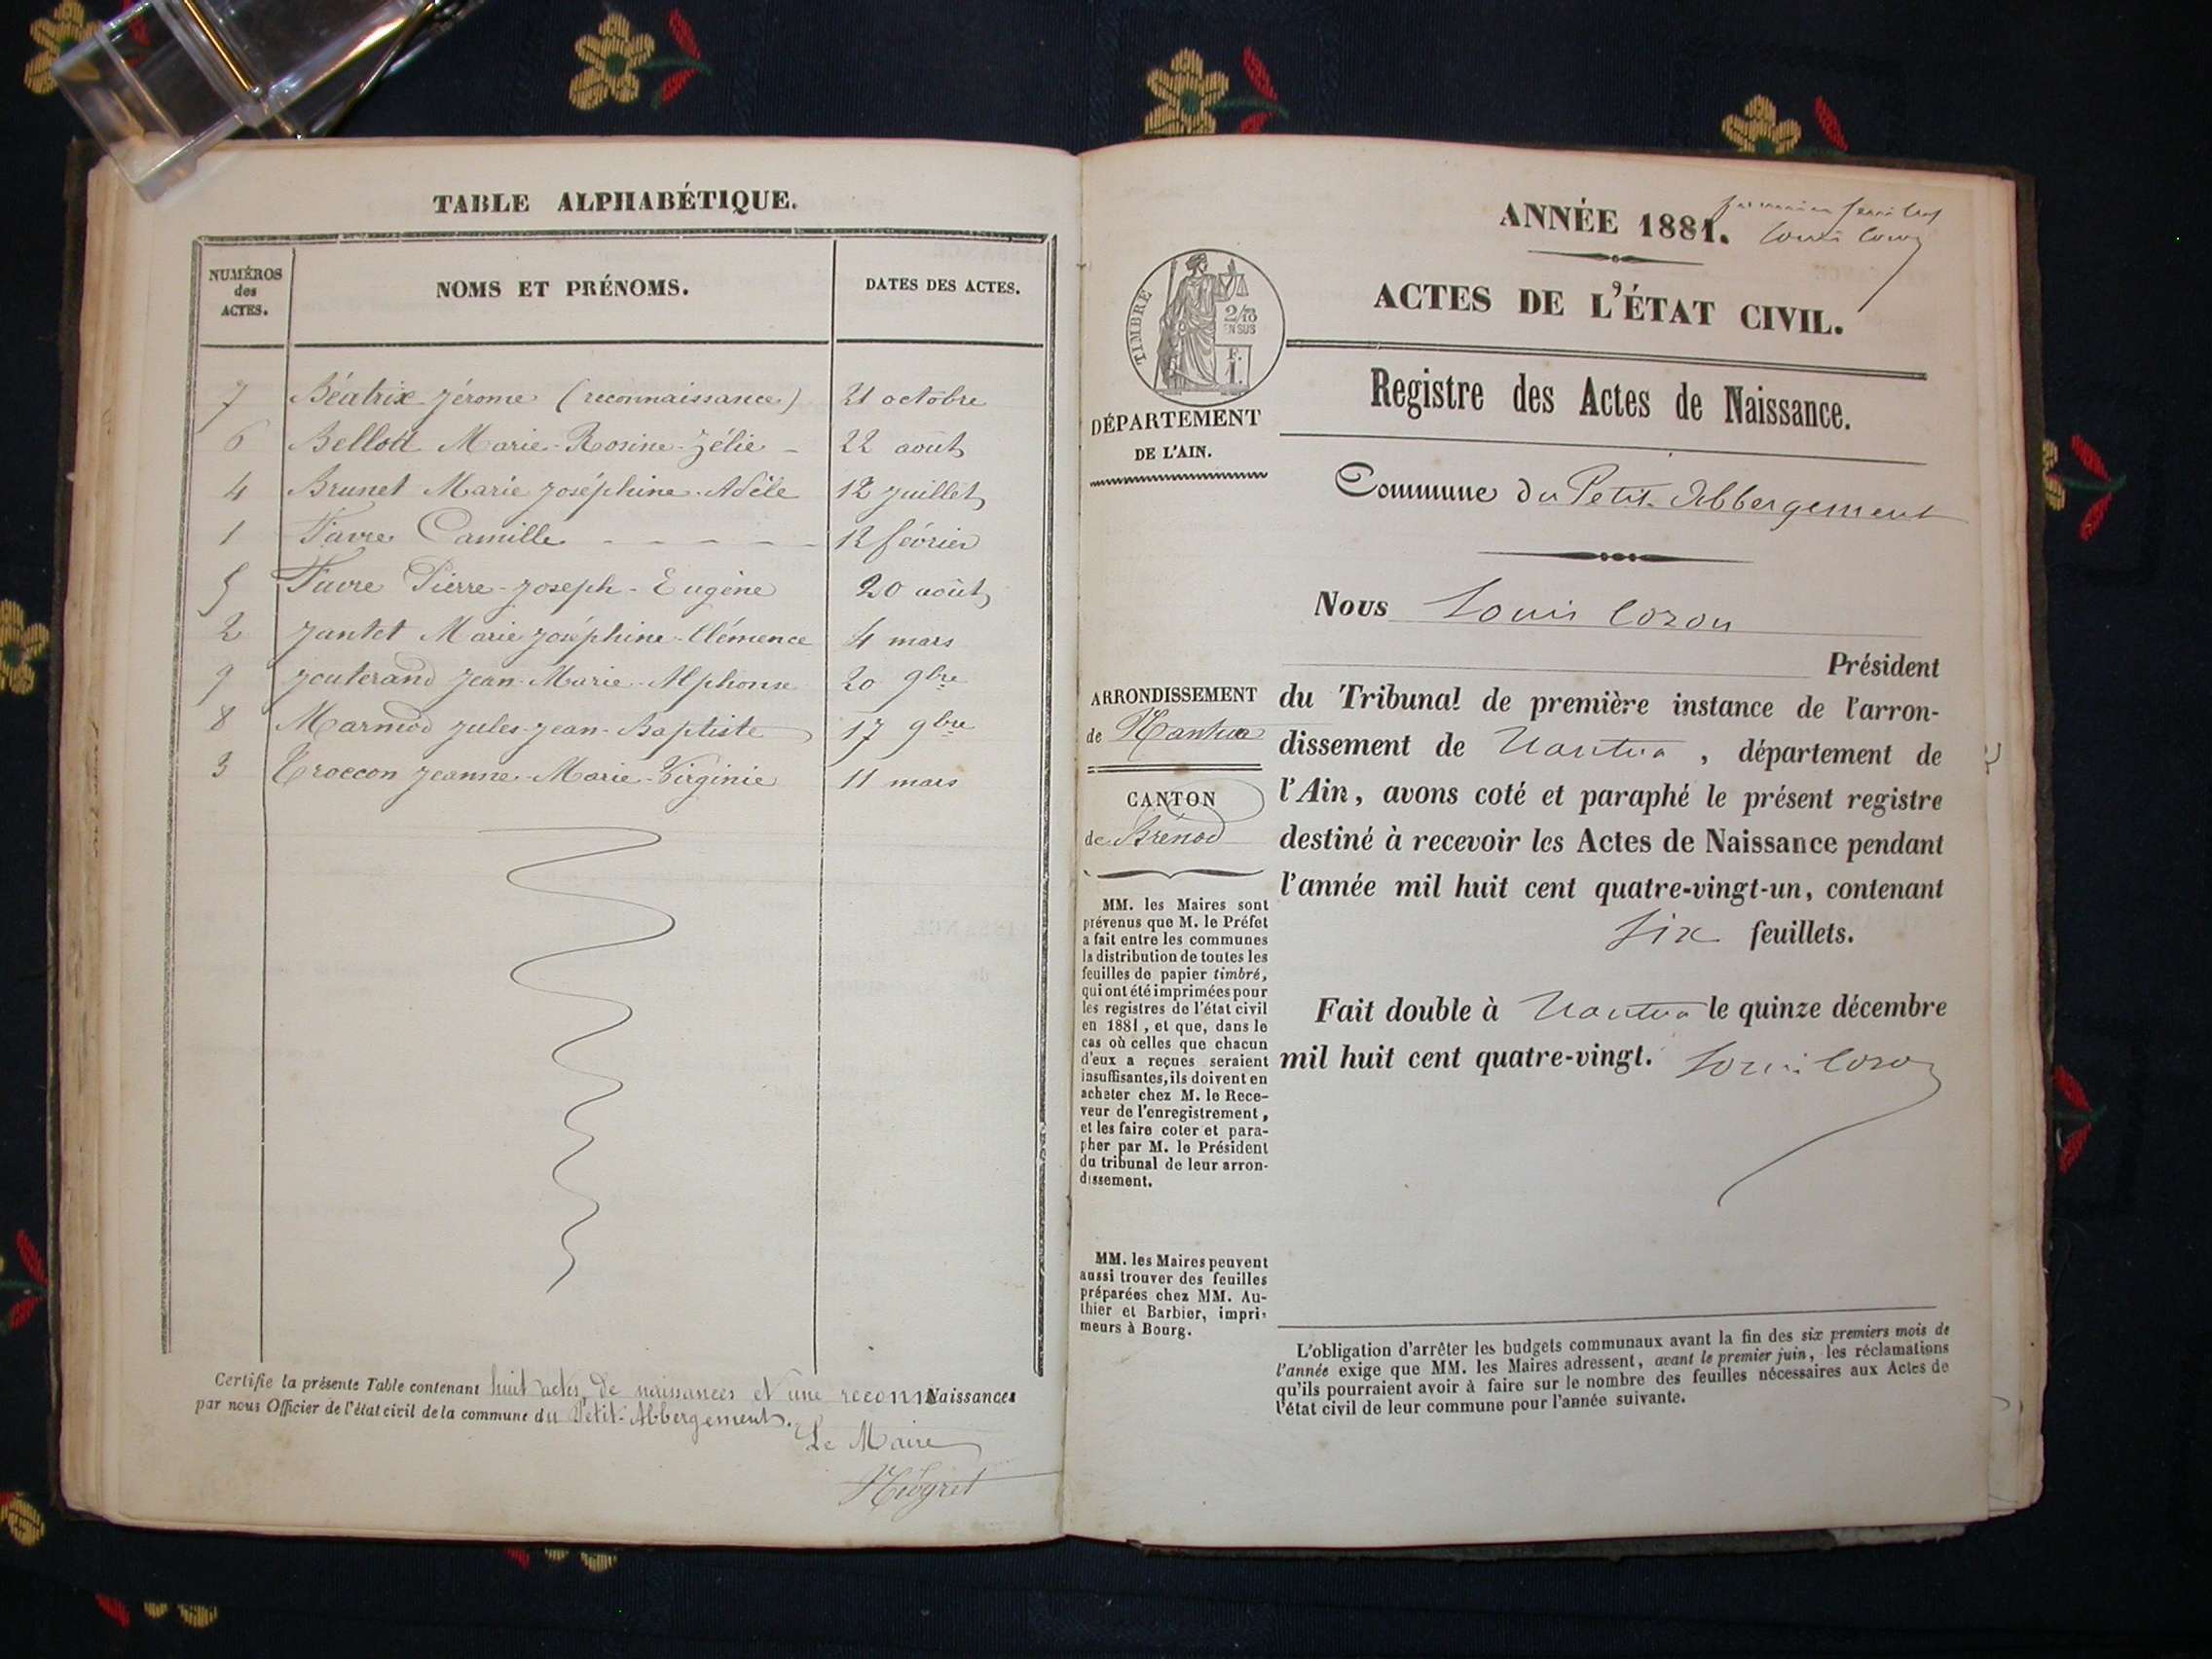 TABLE ALPHABÉTIQUE.
NUMÉROS
des
ACTES.
NOMS ET PRÉNOMS.
DATES DES ACTES.
7 Béatrix Jérome (reconnaissance) 21 octobre
6 Marie-Rosine-Zélie 22 août
4 Brunet Marie Joséphine-Adèle 12 juillet
1 Favre Camille 12 février
5 Favre Pierre-Joseph-Eugène 20 août
2 Jantet Marie Joséphine-Clémence 4 mars
9 Jouterand Jean-Marie-Alphonse 20 9bre
8 Marmod Jules-Jean-Baptiste 17 9bre
3 Jeanne-Marie-Virginie 11 mars
Certifie la présente Table contenant huit actes de naissances et une reconnNaissances
par nous Officier de l'état civil de la commune du Petit-Abbergement.
Le Maire
ANNÉE 1881.
Louis Cozon
ACTES DE L'ÉTAT CIVIL.
TIMBRE
2/10
EN SUS
F.
1.
DÉPARTEMENT
DE L'AIN.
Registre des Actes de Naissance.
Commune du Petit Abbergement
Nous Louis Cozon
Président
du Tribunal de première instance de l'arron-
dissement de Nantua, département de
l'Ain, avons coté et paraphé le présent registre
destiné à recevoir les Actes de Naissance pendant
l'année mil huit cent quatre-vingt-un, contenant
six feuillets.
Fait double à Nantua le quinze décembre
mil huit cent quatre-vingt. Louis Cozon
ARRONDISSEMENT
de Nantua
CANTON
de Brénod
MM. les Maires sont
prévenus que M. le Préfet
a fait entre les communes
la distribution de toutes les
feuilles de papier timbré,
qui ont été imprimées pour
les registres de l'état civil
en 1881, et que, dans le
cas où celles que chacun
d'eux a reçues seraient
insuffisantes, ils doivent en
acheter chez M. le Rece-
veur de l'enregistrement,
et les faire coter et para-
pher par M. le Président
du tribunal de leur arron-
dissement.
MM. les Maires peuvent
aussi trouver des feuilles
préparées chez MM. Au-
thier et Barbier, impri-
meurs à Bourg.
L'obligation d'arrêter les budgets communaux avant la fin des six premiers mois de
l'année exige que MM. les Maires adressent, avant le premier juin, les réclamations
qu'ils pourraient avoir à faire sur le nombre des feuilles nécessaires aux Actes de
l'état civil de leur commune pour l'année suivante.